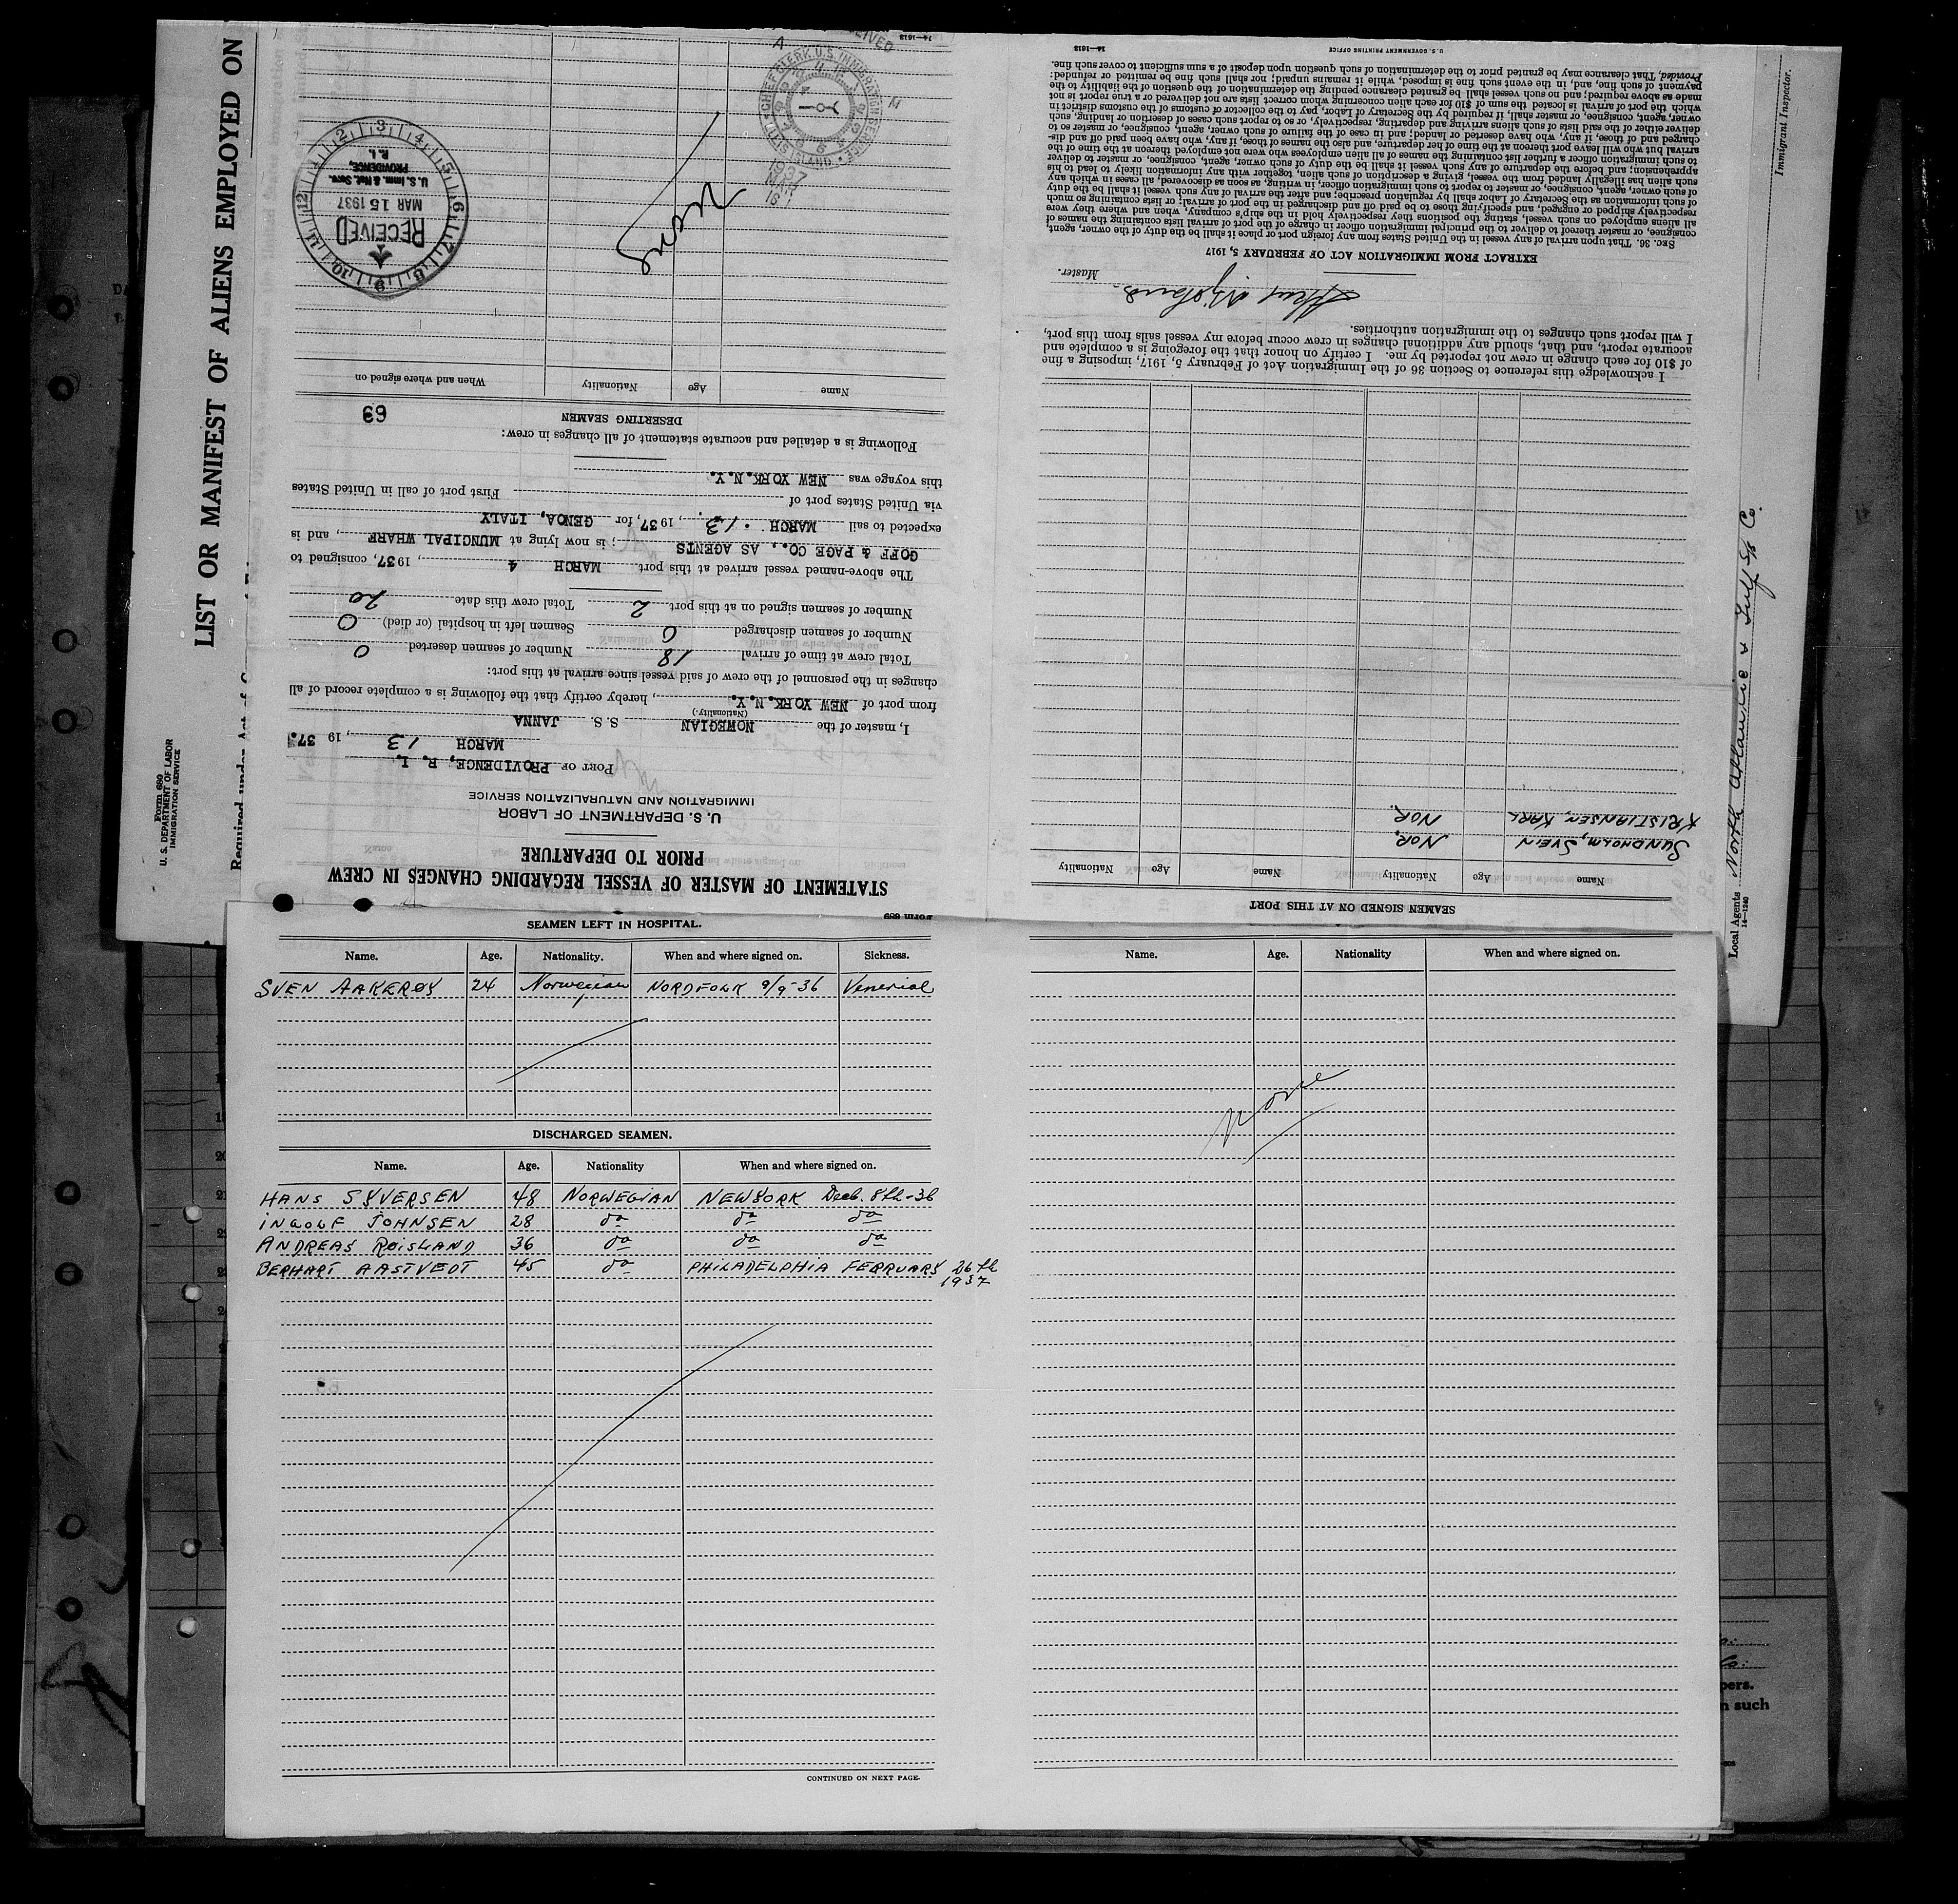 LIST OR MANIFEST OF ALIENS EMPLOYED ON
Form 680
U. S. DEPARTMENT OF LABOR
IMMIGRATION SERVICE
STATEMENT OF MASTER OF VESSEL REGARDING CHANGES IN CREW
PRIOR TO DEPARTURE
U. S. DEPARTMENT OF LABOR
IMMIGRATION AND NATURALIZATION SERVICE
PORT OF PROVIDENCE, R. I.
MARCH 13, 19 37.
I, master of the NOWEGIAN S. S. JANNA
(Nationality)
from port of NEW YORK.N.Y., hereby certify that the following is a complete record of all
changes in the personnel of the crew of said vessel since arrival at this port:
Total crew at time of arrival 18 Number of seamen deserted 0
Number of seamen discharged 0 Seamen left in hospital (or died) 0
Number of seamen signed on at this port 2 Total crew this date 20
The above-named vessel arrived at this port MARCH 4, 1937, consigned to
GOFF & PAGE CO., AS AGENTS; is now lying at MUNCIPAL WHARF, and is
expected to sail MARCH . 13., 1937, for GENOA, ITALY
via United States port of First port of call in United States
this voyage was NEW YORK.N.Y.
Following is a detailed and accurate statement of all changes in crew:
DESERTING SEAMEN
63
Name Age Nationality When and where signed on
RECEIVED
MAR 15 1937
U. S. Imm. & Nat. Serv.
PROVIDENCE,
R. I.
14—1613
SEAMEN SIGNED ON AT THIS PORT
Name Age Nationality Name Age Nationality
SUNDHOLM, SVEIN NOR.
KRISTIANSEN, KARL NOR.
I acknowledge this reference to Section 36 of the Immigration Act of February 5, 1917, imposing a fine
of $10 for each change in crew not reported by me. I certify on honor that the foregoing is a complete and
accurate report, and that, should any additional changes in crew occur before my vessel sails from this port,
I will report such changes to the immigration authorities.
Master.
EXTRACT FROM IMMIGRATION ACT OF FEBRUARY 5, 1917
SEC. 36. That upon arrival of any vessel in the United States from any foreign port or place it shall be the duty of the owner, agent,
consignee, or master thereof to deliver to the principal immigration officer in charge of the port of arrival lists containing the names of
all aliens employed on such vessel, stating the positions they respectively hold in the ship's company, when and where they were
respectively shipped or engaged, and specifying those to be paid off and discharged in the port of arrival; or lists containing so much
of such information as the Secretary of Labor shall by regulation prescribe; and after the arrival of any such vessel it shall be the duty
of such owner, agent, consignee, or master to report to such immigration officer, in writing, as soon as discovered, all cases in which any
such alien has illegally landed from the vessel, giving a description of such alien, together with any information likely to lead to his
apprehension; and before the departure of any such vessel it shall be the duty of such owner, agent, consignee, or master to deliver
to such immigration officer a further list containing the names of all alien employees who were not employed thereon at the time of the
arrival but who will leave port thereon at the time of her departure, and also the names of those, if any, who have been paid off and dis-
charged and of those, if any, who have deserted or landed; and in case of the failure of such owner, agent, consignee, or master to
deliver either of the said lists of such aliens arriving and departing, respectively, or so to report such cases of desertion or landing, such
owner, agent, consignee, or master shall, if required by the Secretary of Labor, pay to the collector of customs of the customs district in
which the port of arrival is located the sum of $10 for each alien concerning whom correct lists are not delivered or a true report is not
made as above required; and no such vessel shall be granted clearance pending the determination of the question of the liability to the
payment of such fine, and, in the event such fine is imposed, while it remains unpaid; nor shall such fine be remitted or refunded:
Provided, That clearance may be granted prior to the determination of such question upon deposit of a sum sufficient to cover such fine.
U. S. GOVERNMENT PRINTING OFFICE 14—1613
Immigrant Inspector.
Local Agents North Atlantic & Gulf S/S Co.
14—1240
Form 689
SEAMEN LEFT IN HOSPITAL.
Name. Age. Nationality. When and where signed on. Sickness.
SVEN AAKERØY 24 Norwegian NORDFOLK 9/9-36 Venerial
DISCHARGED SEAMEN.
Name. Age. Nationality When and where signed on.
HANS SYVERSEN 48 NORWEGIAN NEWYORK Decb. 8th-36
INGOLF JOHNSEN 28 do do do
ANDREAS RØISLAND 36 do do do
BERHART AASTVEDT 45 do PHILADELPHIA FEBRUARY 26th
1937
CONTINUED ON NEXT PAGE.
Name. Age. Nationality When and where signed on.
None